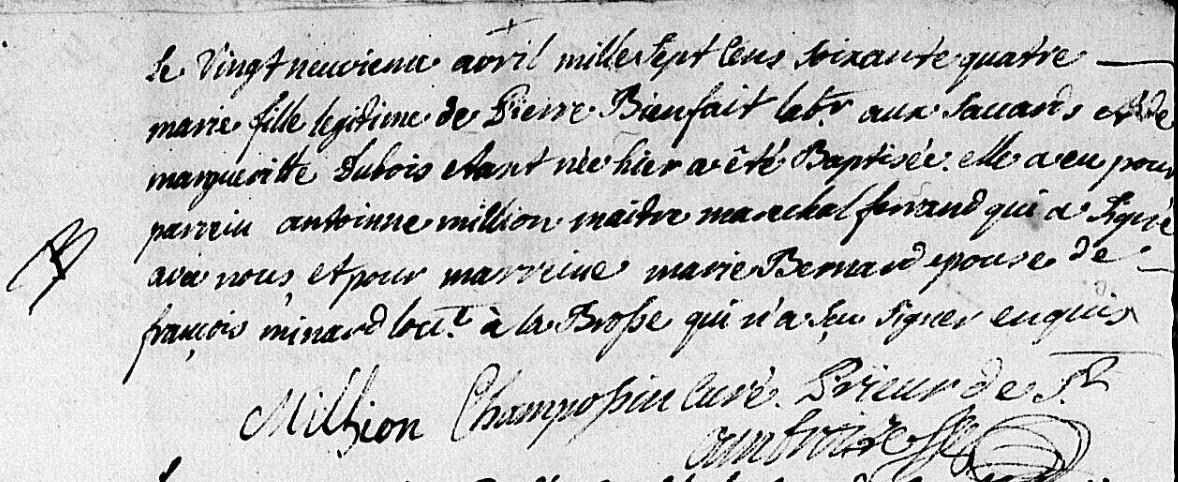 Le Vingt neuvieme avril mille sept Cens soixante quatre
marie fille legitime de Pierre Bienfait lab.r aux Jaccards et de
margueritte Dubois etant née hier a êté Baptisée. elle a eu pour
parrein antoinne million maitre marechal ferrand qui a signé
avec nous, et pour marreine marie Bernard epouse de
françois minard loc.t à la Brosse qui n'a sçu signer enquis
Million Champossin Curé. Prieur de St
ambroise